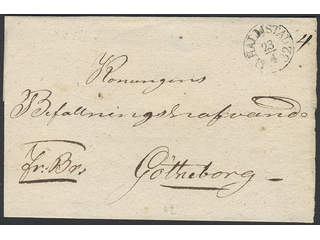 HALMSTAD
23
4
4
Konungens
Befallningshafvande
fr: Br:
Götheborg